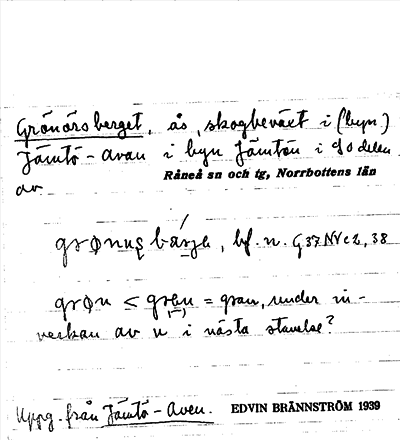 Grönörsberget, ås, skogbeväxt i (byn)
Jämtö-avan i byn Jämtön i s delen
av Råneå sn och tg, Norrbottens län
bf. n. G 37 NV c 2, 38
grøn < = gran, under in-
verkan av u i nästa stavelse?
Uppg. från Jämtö-Aven. EDVIN BRÄNNSTRÖM 1939